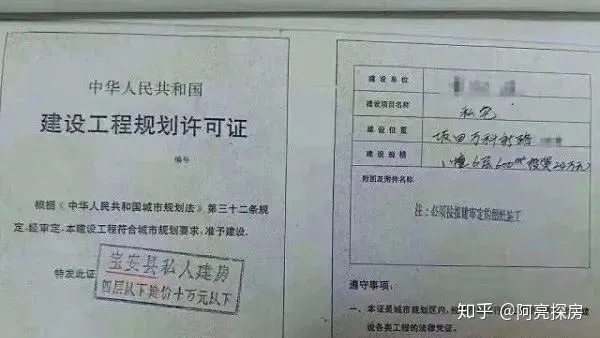 中华人民共和国
建设工程规划许可证
编号
根据《中华人民共和国城市规划法》第三十二条规
定,经审定,本建设工程符合城市规划要求,准予建设。
特发此证
宝安县私人建房
四层以下造价十万元以下
建设单位
建设项目名称 私宅
建设位置 坂田万科新
建设规模 1幢6层600m² 投资24万元
附图及附件名称
注:必须按报建审定的图纸施工
遵守事项:
一、本证是城市规划区内,
设各类工程的法律凭证。
知乎 @阿亮探房